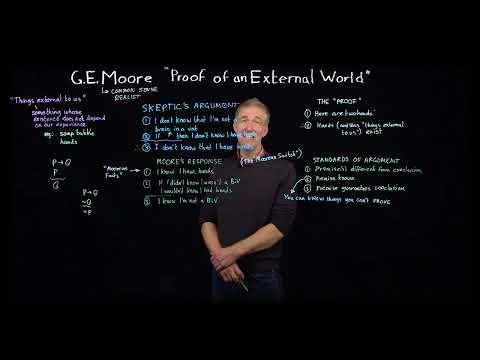 G.E. Moore "Proof of an External World"
↳ COMMON SENSE
REALIST
"Things external to us"
something whose
existence does not depend
on our experience.
eg: soap bubble
hands
P → Q
P
Q
P → Q
~Q
~P
"Moorean
Facts"
SKEPTIC'S ARGUMENT
① I don't know that I'm not
brain in a vat
② If " then I don't know I have
∴ ③ I don't know that I have hands
MOORE'S RESPONSE
("The Moorean Switch")
① I know I have hands
② If I didn't know I wasn't a BIV
I wouldn't know I had hands
③ I know I'm not a BIV
THE "PROOF"
① Here are two hands
∴ ② Hands (and thus "things external
to us") exist
STANDARDS OF ARGUMENT
① Premise is different from conclusion
② Premise known
③ Premise guarantees conclusion
You can know things you can't PROVE